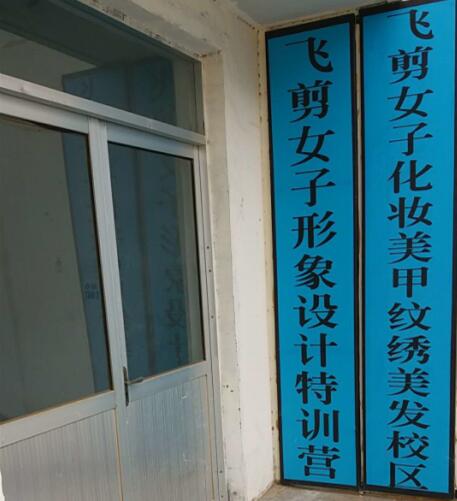 飞剪女子化妆美甲纹绣美发校区
飞剪女子形象设计特训营